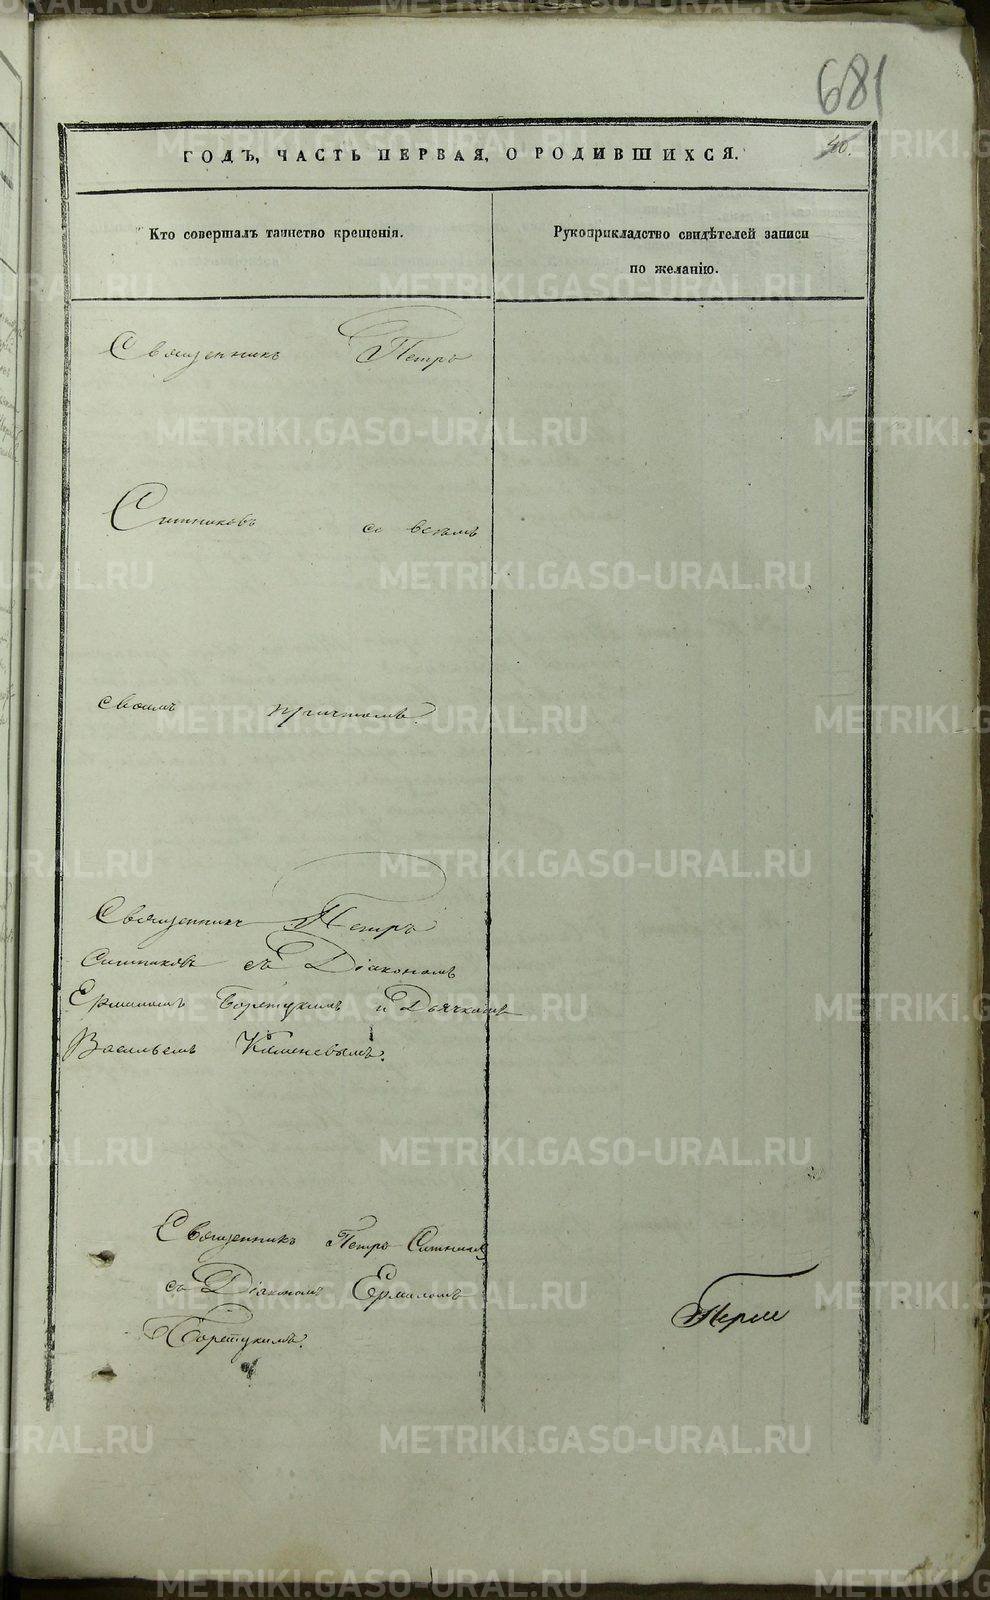 681
ГОДЪ, ЧАСТЬ ПЕРВАЯ, О РОДИВШИХСЯ.
Кто совершалъ таинство крещенія.
Рукоприкладство свидѣтелей записи
по желанію.
Священникъ Петръ
Ситниковъ со всѣмъ
своимъ причтомъ.
Священникъ Петръ
Ситниковъ съ Діакономъ
Ермиломъ и Дьячкомъ
Васильемъ Каменевымъ.
Священникъ Петръ
съ Діакономъ Ермиломъ
METRIKI.GASO-URAL.RU